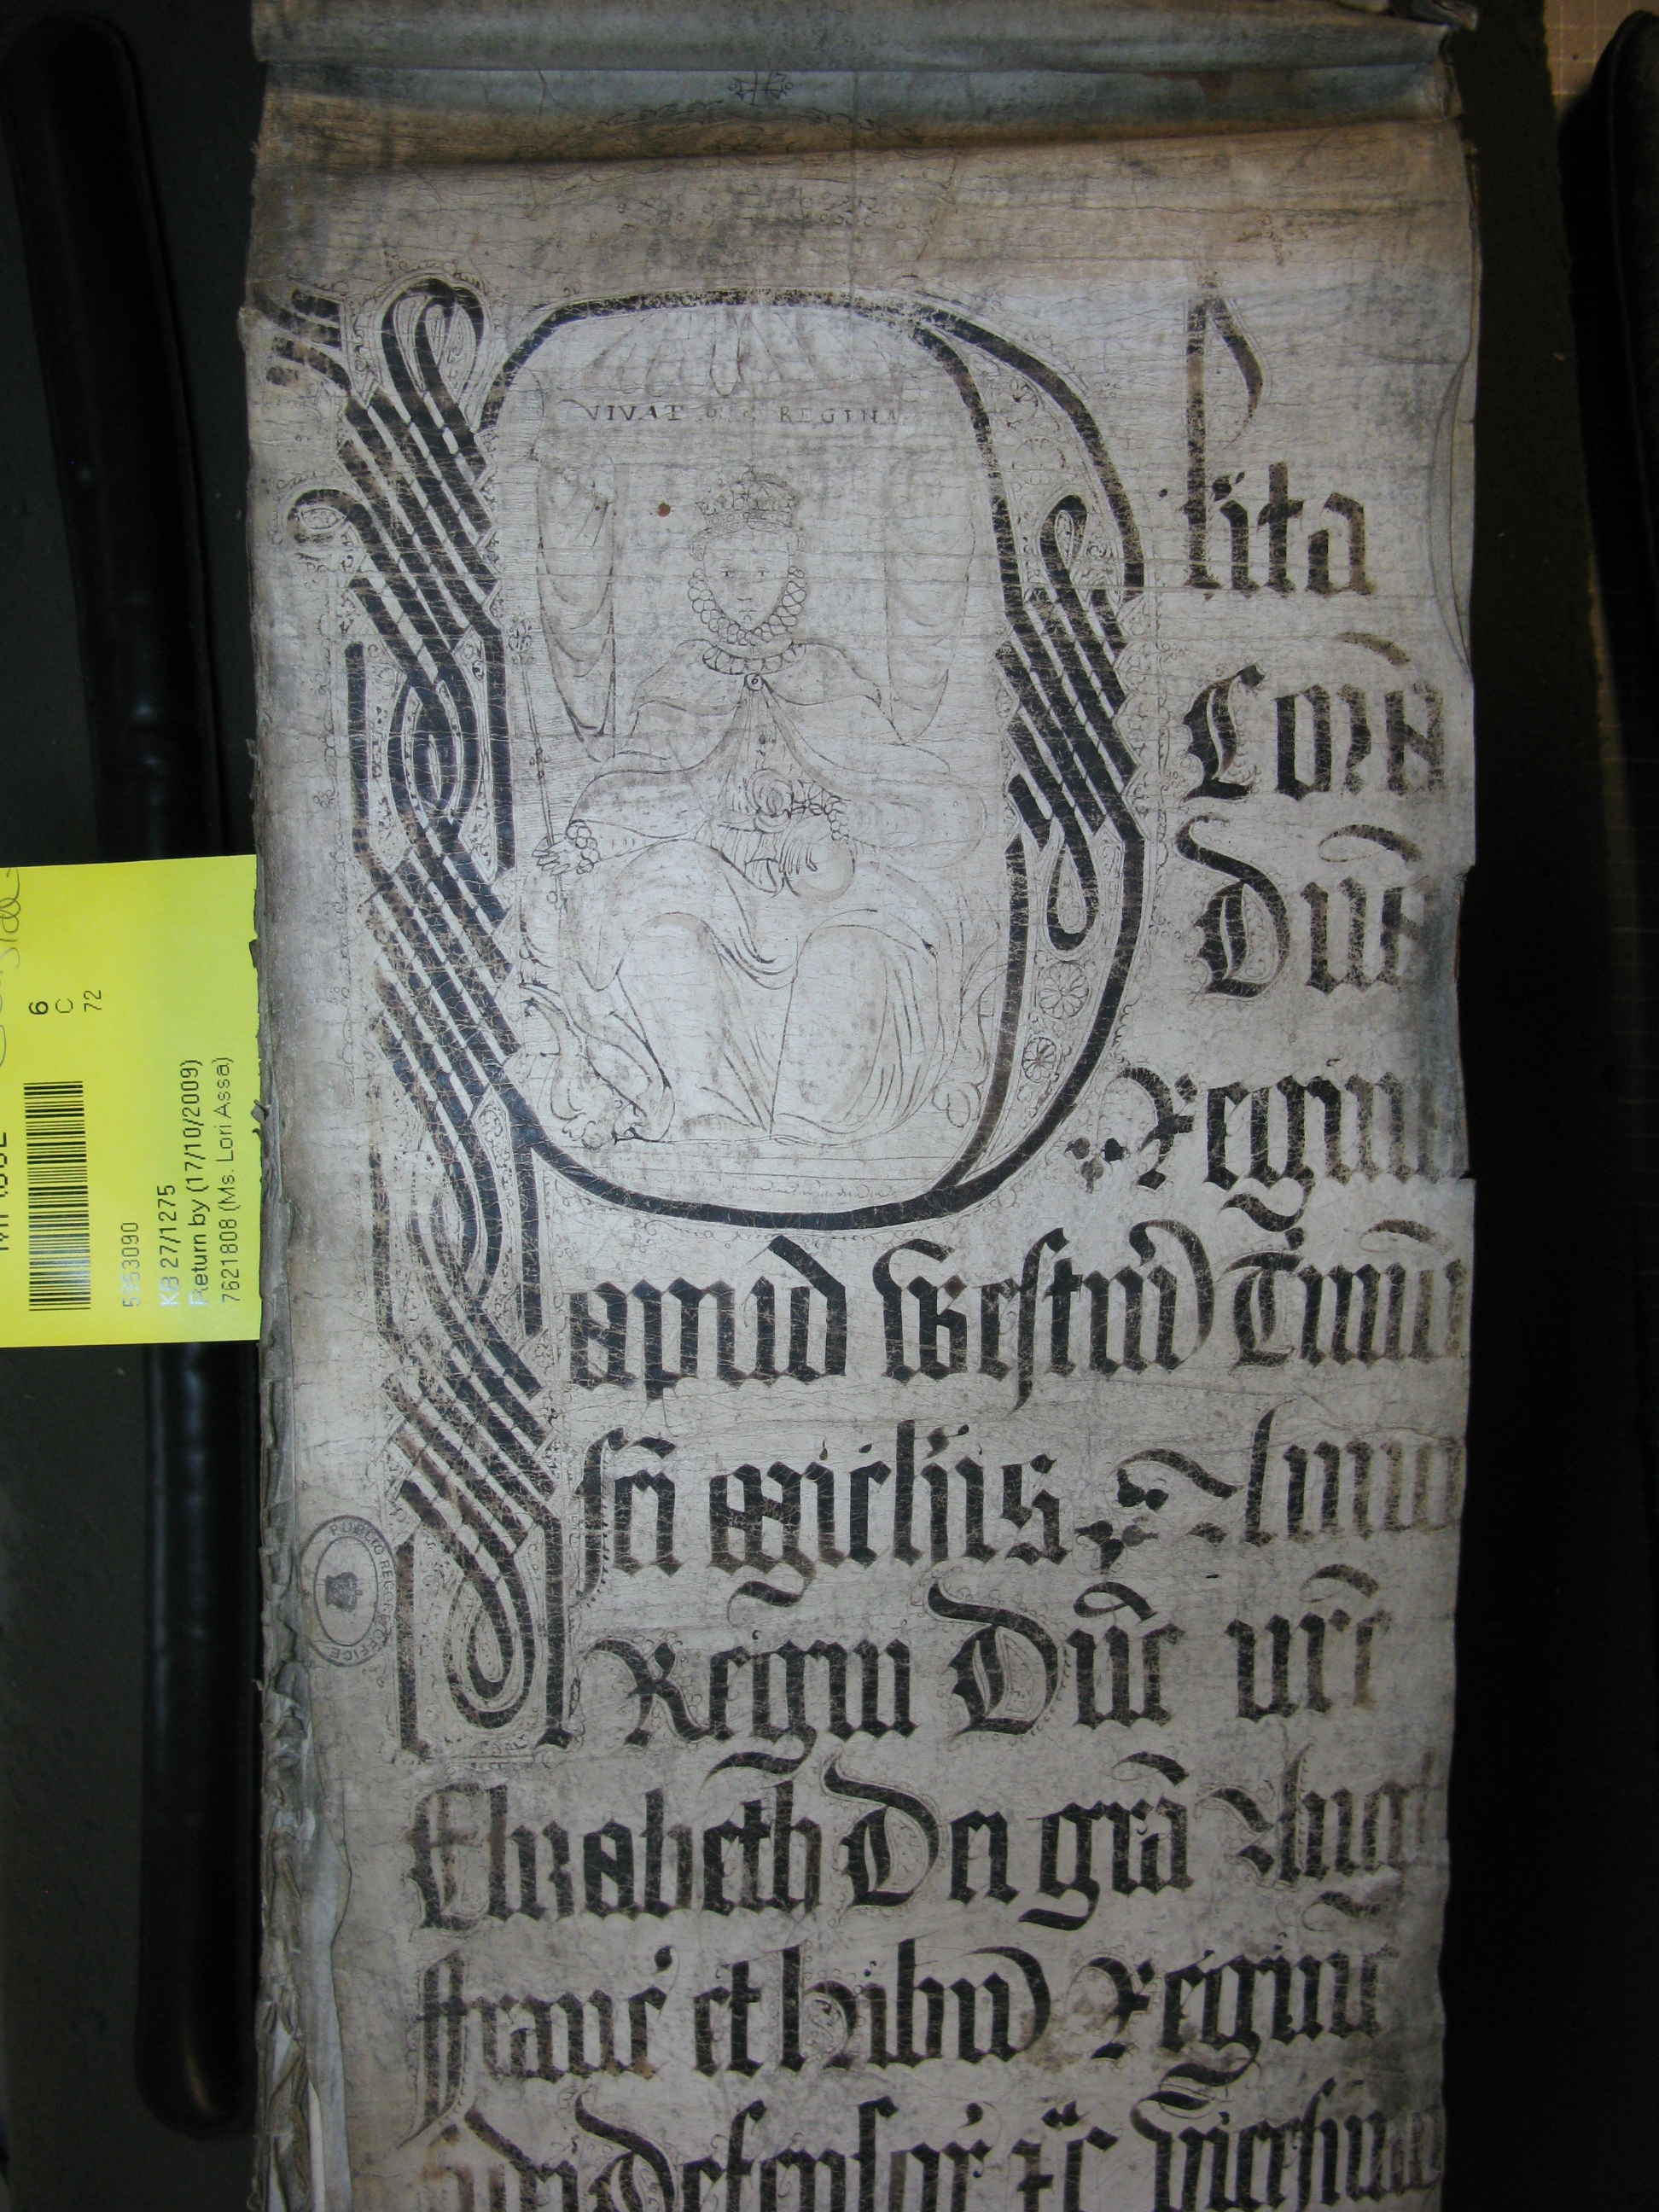 VIVAT REGINA
Plita
Corā
Dnā
Regina
apud Westm̄ Termio
sci Michis Anno
Regni Dnē nrē
Elizabeth Dei grā Angl
Franc' et hibnī Reginē
fidei Defensor' &c vicesimo
PUBLIC RECORD OFFICE
6
C
72
553090
KB 27/1275
Return by (17/10/2009)
7621808 (Ms. Lori Assa)